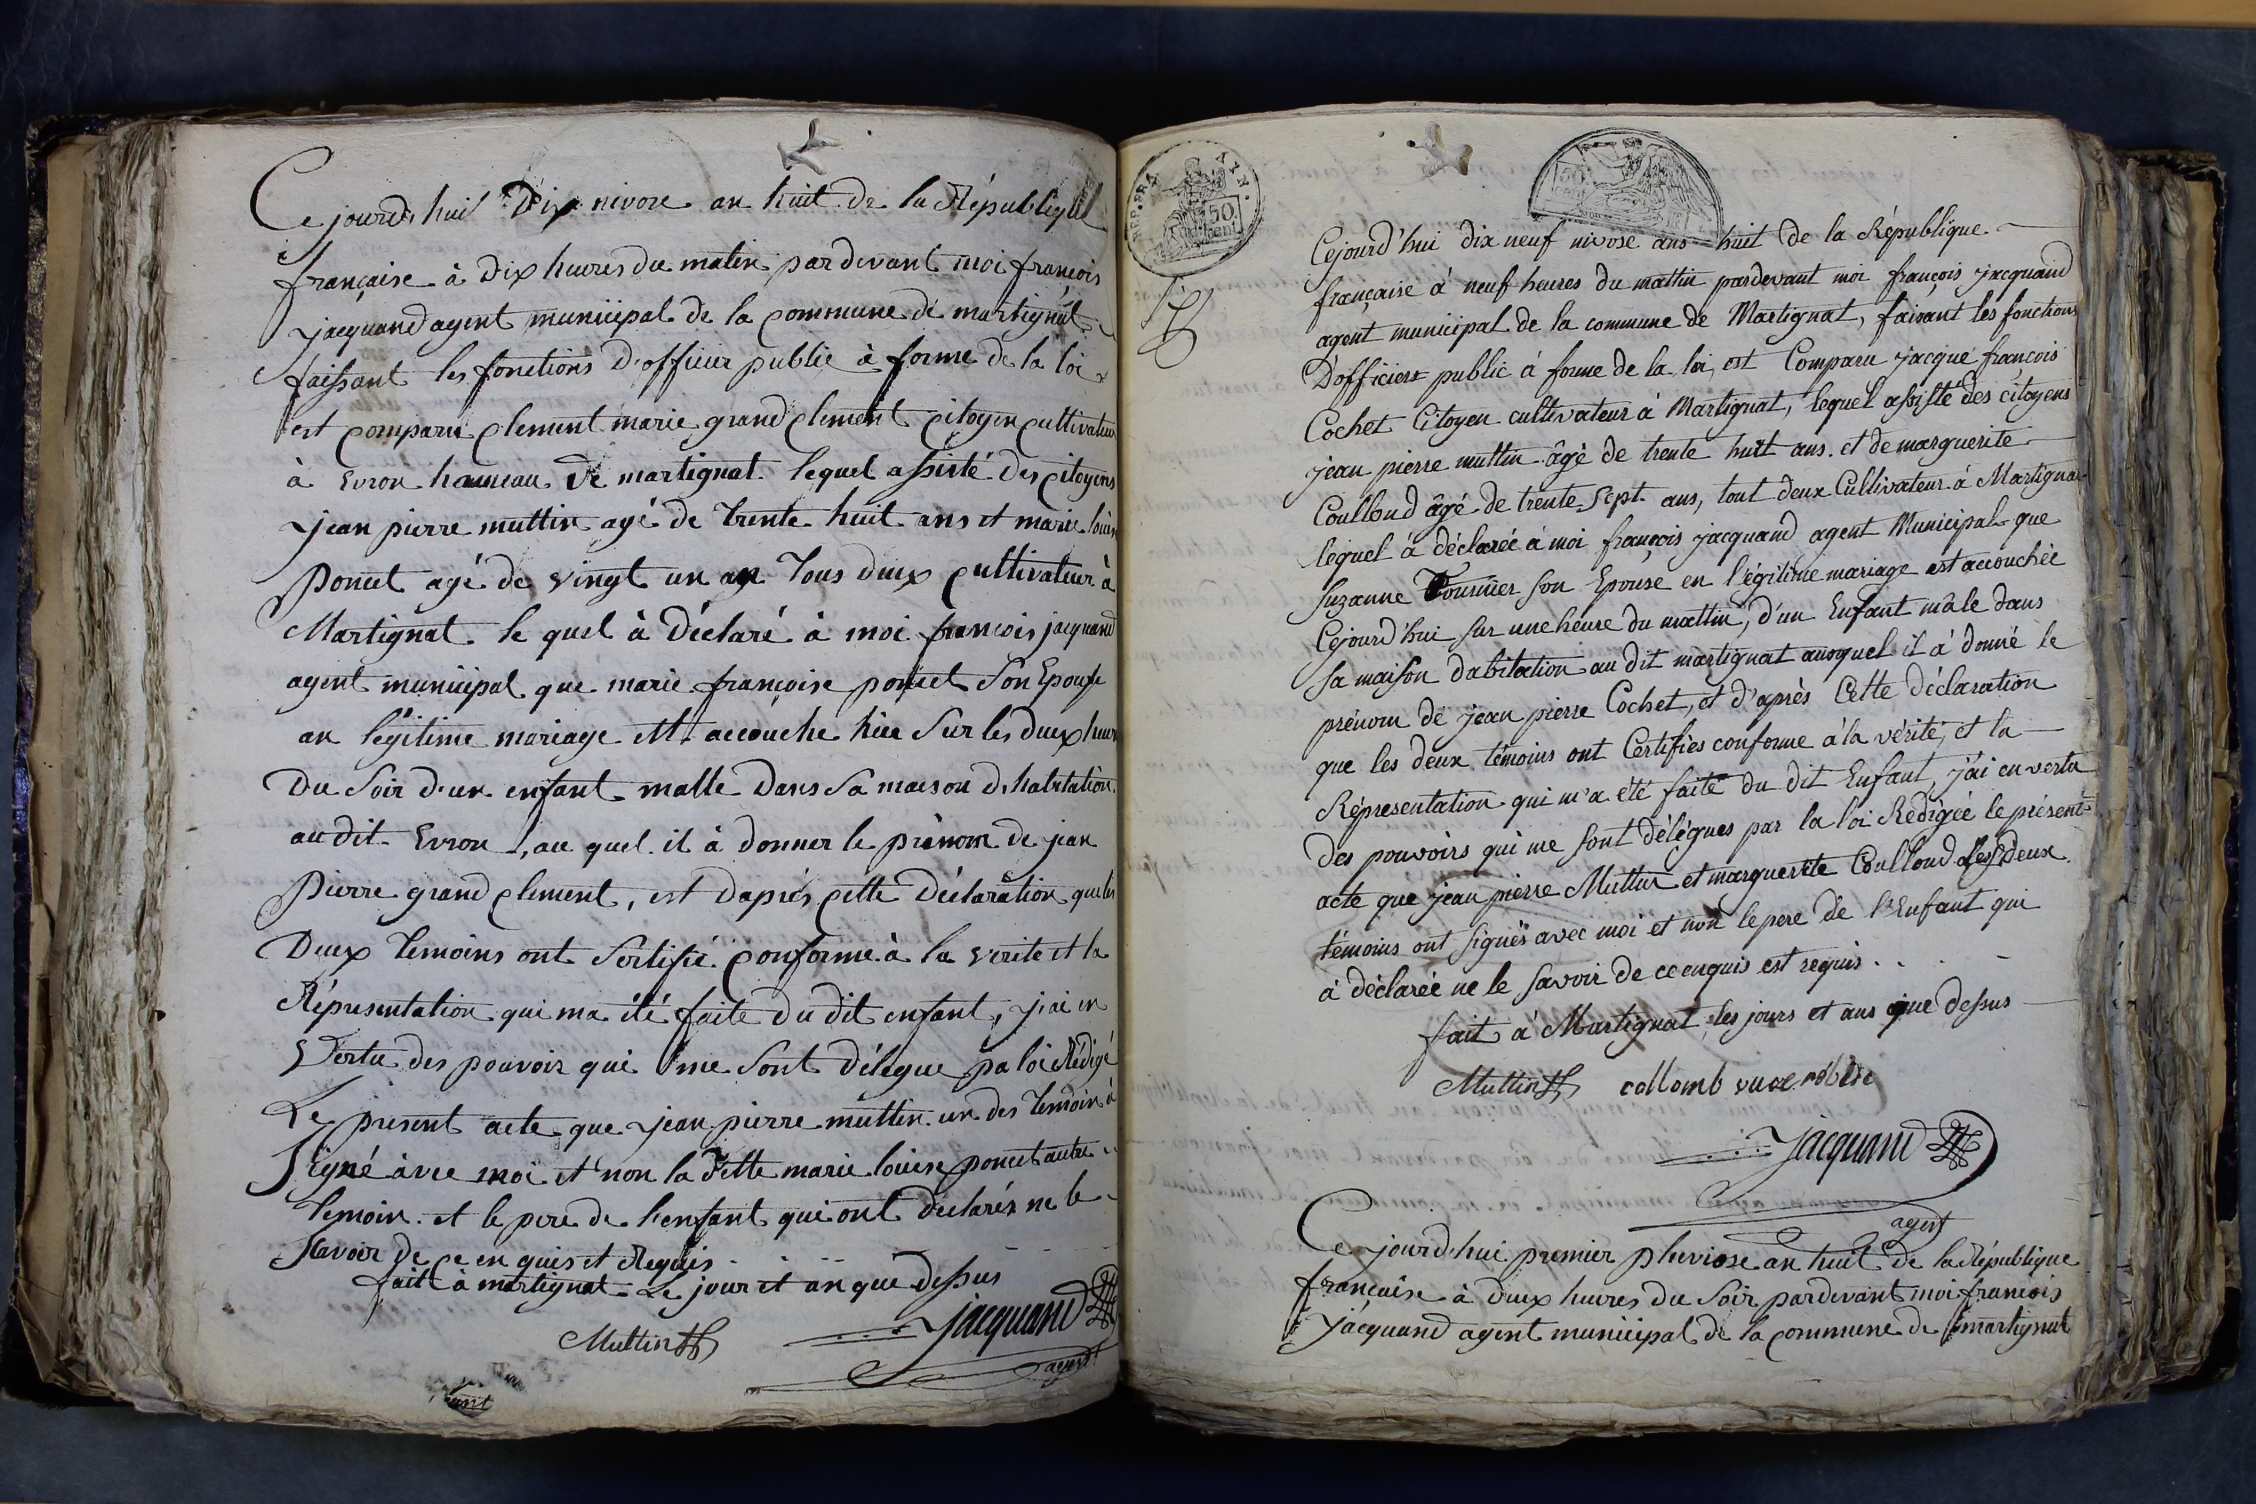 Ce jourd'hui Dix nivose an huit de la République
française à Dix heures du matin pardevant moi françois
jacquand agent municipal de la commune de martignat
faissant les fonctions D'officier public à forme de la loi
est comparu clement marie grand clement citoyen cultivateur
à Evron hameau de martignat lequel assisté des citoyens
jean pierre muttin agé de trente huit ans et marie louise
poncet agé de vingt un an tous deux cultivateur à
Martignat le quel à déclaré à moi francois jacquand
agent municipal que marie françoise poncet son Epouse
an légitime mariage Et accouche hier sur les deux heures
du soir d'un enfant malle dans sa maison d'habitation
au dit Evron, au quel il à donner le prénom de jean
pierre grand clement, est d'aprés cette déclaration que les
deux temoins ont sertifié conforme à la verite et la
Réprésentation qui ma été faite du dit enfant, j'ai en
vertu des pouvoir qui me sont délegue pa loi Rédigé
Le present acte que jean pierre muttin un des temoin à
signé avec moi et non la dette marie louise poncet autre
temoin et le pere de l'enfant qui ont déclarés ne le
savoir de ce en quis et Requis
fait à martignat le jour et an que dessus
Muttin
jacquand
agent
REP. FRA.
50 cent
Cejourd'hui dix neuf nivose ans huit de la République
française à neuf heures du mattin pardevant moi françois jacquand
agent municipal de la commune de Martignat, faisant les fonctions
D'officier public à forme de la loi, est Comparu jacque françois
Cochet Citoyen cultivateur à Martignat, lequel assisté des citoyens
jean pierre muttin âgé de trente huit ans. et de marguerite
Coulloud âgé de trente sept ans, tout deux Cultivateur à Martignat
lequel à déclarée à moi françois jacquand agent Municipal que
suzanne Tournier son Epouse en légitime mariage est accouchée
Cejourd'hui sur une heure du mattin, d'un Enfant mâle dans
sa maison d'abitation au dit martignat auoquel il à donné le
prénom de jean pierre Cochet, et d'après Cette déclaration
que les deux témoins ont Certifies conforme à la vérité, et la
Réprésentation qui m'a été faite du dit Enfant, j'ai en vertu
des pouvoirs qui me sont délégues par la loi Redigée le présent
acte que jean pierre Muttin et marguerite Coulloud les deux
témoins ont signés avec moi et non le pere de l'Enfant qui
à déclarée ne le savoir de ce enquis est requis.
fait à Martignat, les jours et ans que dessus
Muttin collomb
jacquand
agent
Ce jourd'hui premier pluviose an huit de la République
française à deux heures du soir pardevant moi francois
jacquand agent municipal de la commune de martignat